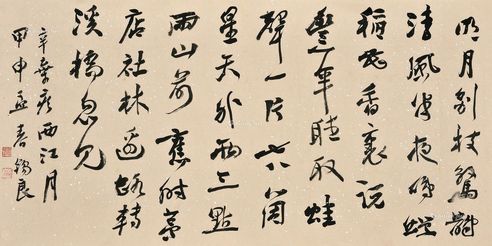 明月别枝驚鵲
清風半夜鳴蟬
稻花香裏説
豐年聽取蛙
聲一片七八箇
星天外兩三點
雨山前舊時茅
店社林邊路轉
溪橋忽見
辛棄疾西江月
甲申孟春錫良